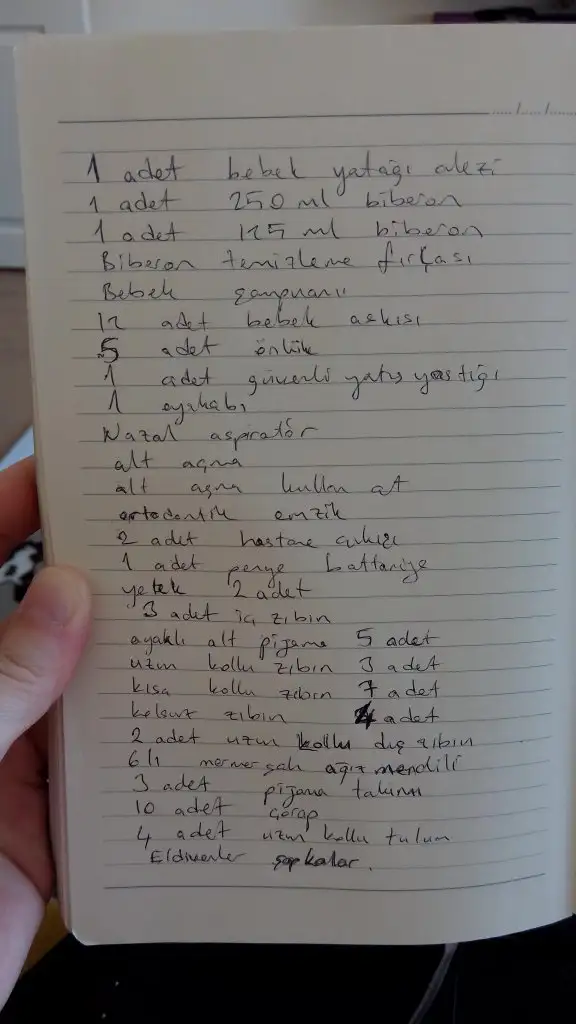 ..../..../....
1 adet bebek yatağı alezi
1 adet 250 ml biberon
1 adet 125 ml biberon
Biberon temizleme fırçası
Bebek şampuanı
12 adet bebek askısı
5 adet önlük
1 adet güvenli yatış yastığı
1 ayakkabı
Nazal aspiratör
alt açma
alt açma kullan at
ortodontik emzik
2 adet hastane çıkışı
1 adet penye battaniye
yelek 2 adet
3 adet iç zıbın
ayaklı alt pijama 5 adet
uzun kollu zıbın 3 adet
kısa kollu zıbın 7 adet
kolsuz zıbın 4 adet
2 adet uzun kollu dış zıbın
6lı mermerşahi ağız mendili
3 adet pijama takımı
10 adet çorap
4 adet uzun kollu tulum
Eldivenler şapkalar.